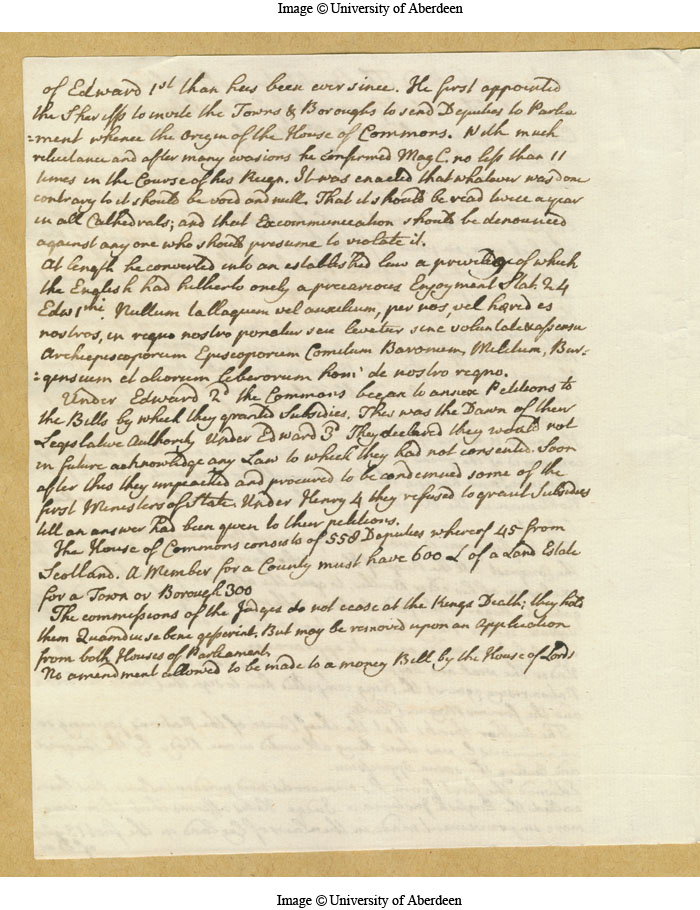 Image © University of Aberdeen
of Edward 1st than has been ever since. He first appointed
the Sheriffs to invite the Towns & Boroughs to send Deputies to Parlia
=ment whence the Origin of the House of Commons. With much
reluctance and after many evasions he confirmed Mag C. no less than 11
times in the Course of his Reign. It was enacted that whatever was done
contrary to it should be void and null. That it should be read twice a year
in all Cathedrals; and that Excommunication should be denounced
against any one who should presume to violate it.
At length he converted into an established law a priviledge of which
the English had hitherto onely a precarious Enjoyment Stat. 24
Edw 1mi. Nullum tallagium vel auxilium, per nos, vel hæredes
nostros, in regno nostro ponatur seu levetur sine voluntate & assensu
Archiepiscoporum Episcoporum Comitum Baronum, Militum, Bur=
=gensium et aliorum liberorum hom' de nostro regno.
Under Edward 2d the Commons began to annex Petitions to
the Bills by which they granted Subsidies. This was the Dawn of their
Legislative Authority Under Edward 3d They declared they would not
in future acknowledge any Law to which they had not consented. Soon
after this they impeached and procured to be condemned some of the
first Ministers of State. Under Henry 4 they refused to grant Subsidies
till an answer had been given to their petitions.
The House of Commons consists of 558 Deputies whereof 45 from
Scotland. A Member for a County must have 600 £ of a Land Estate
for a Town or Borough 300
The commissions of the Judges do not cease at the Kings Death; they hold
them Quamdiu se bene gesserint; But may be removed upon an Application
from both Houses of Parliament.
No amendment allowed to be made to a money Bill by the House of Lords
Image © University of Aberdeen